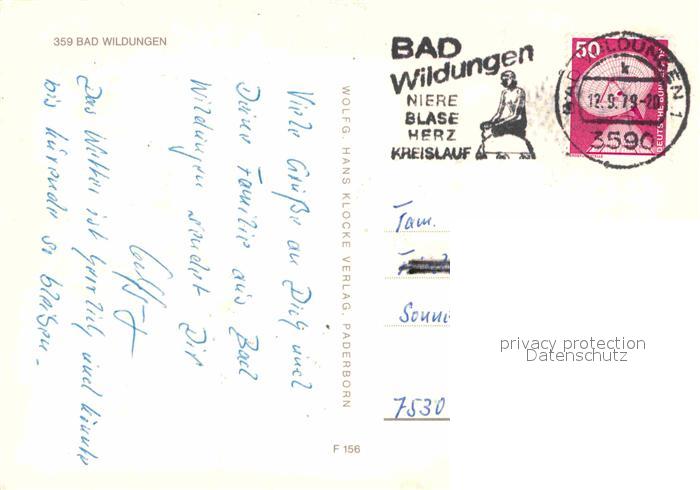 359 BAD WILDUNGEN
Viele Grüße an Dich und
Deine Familie aus Bad
Wildungen sendet Dir
Das Wetter ist herrlich und könnte
bis hürende so bleiben.
WOLFG. HANS KLOCKE VERLAG, PADERBORN
F 156
BAD
Wildungen
NIERE
BLASE
HERZ
KREISLAUF
50
DEUTSCHE BUNDESPOST
BAD WILDUNGEN 1
12.9.79-20
3590
Fam.
Sonne
7530
privacy protection
Datenschutz